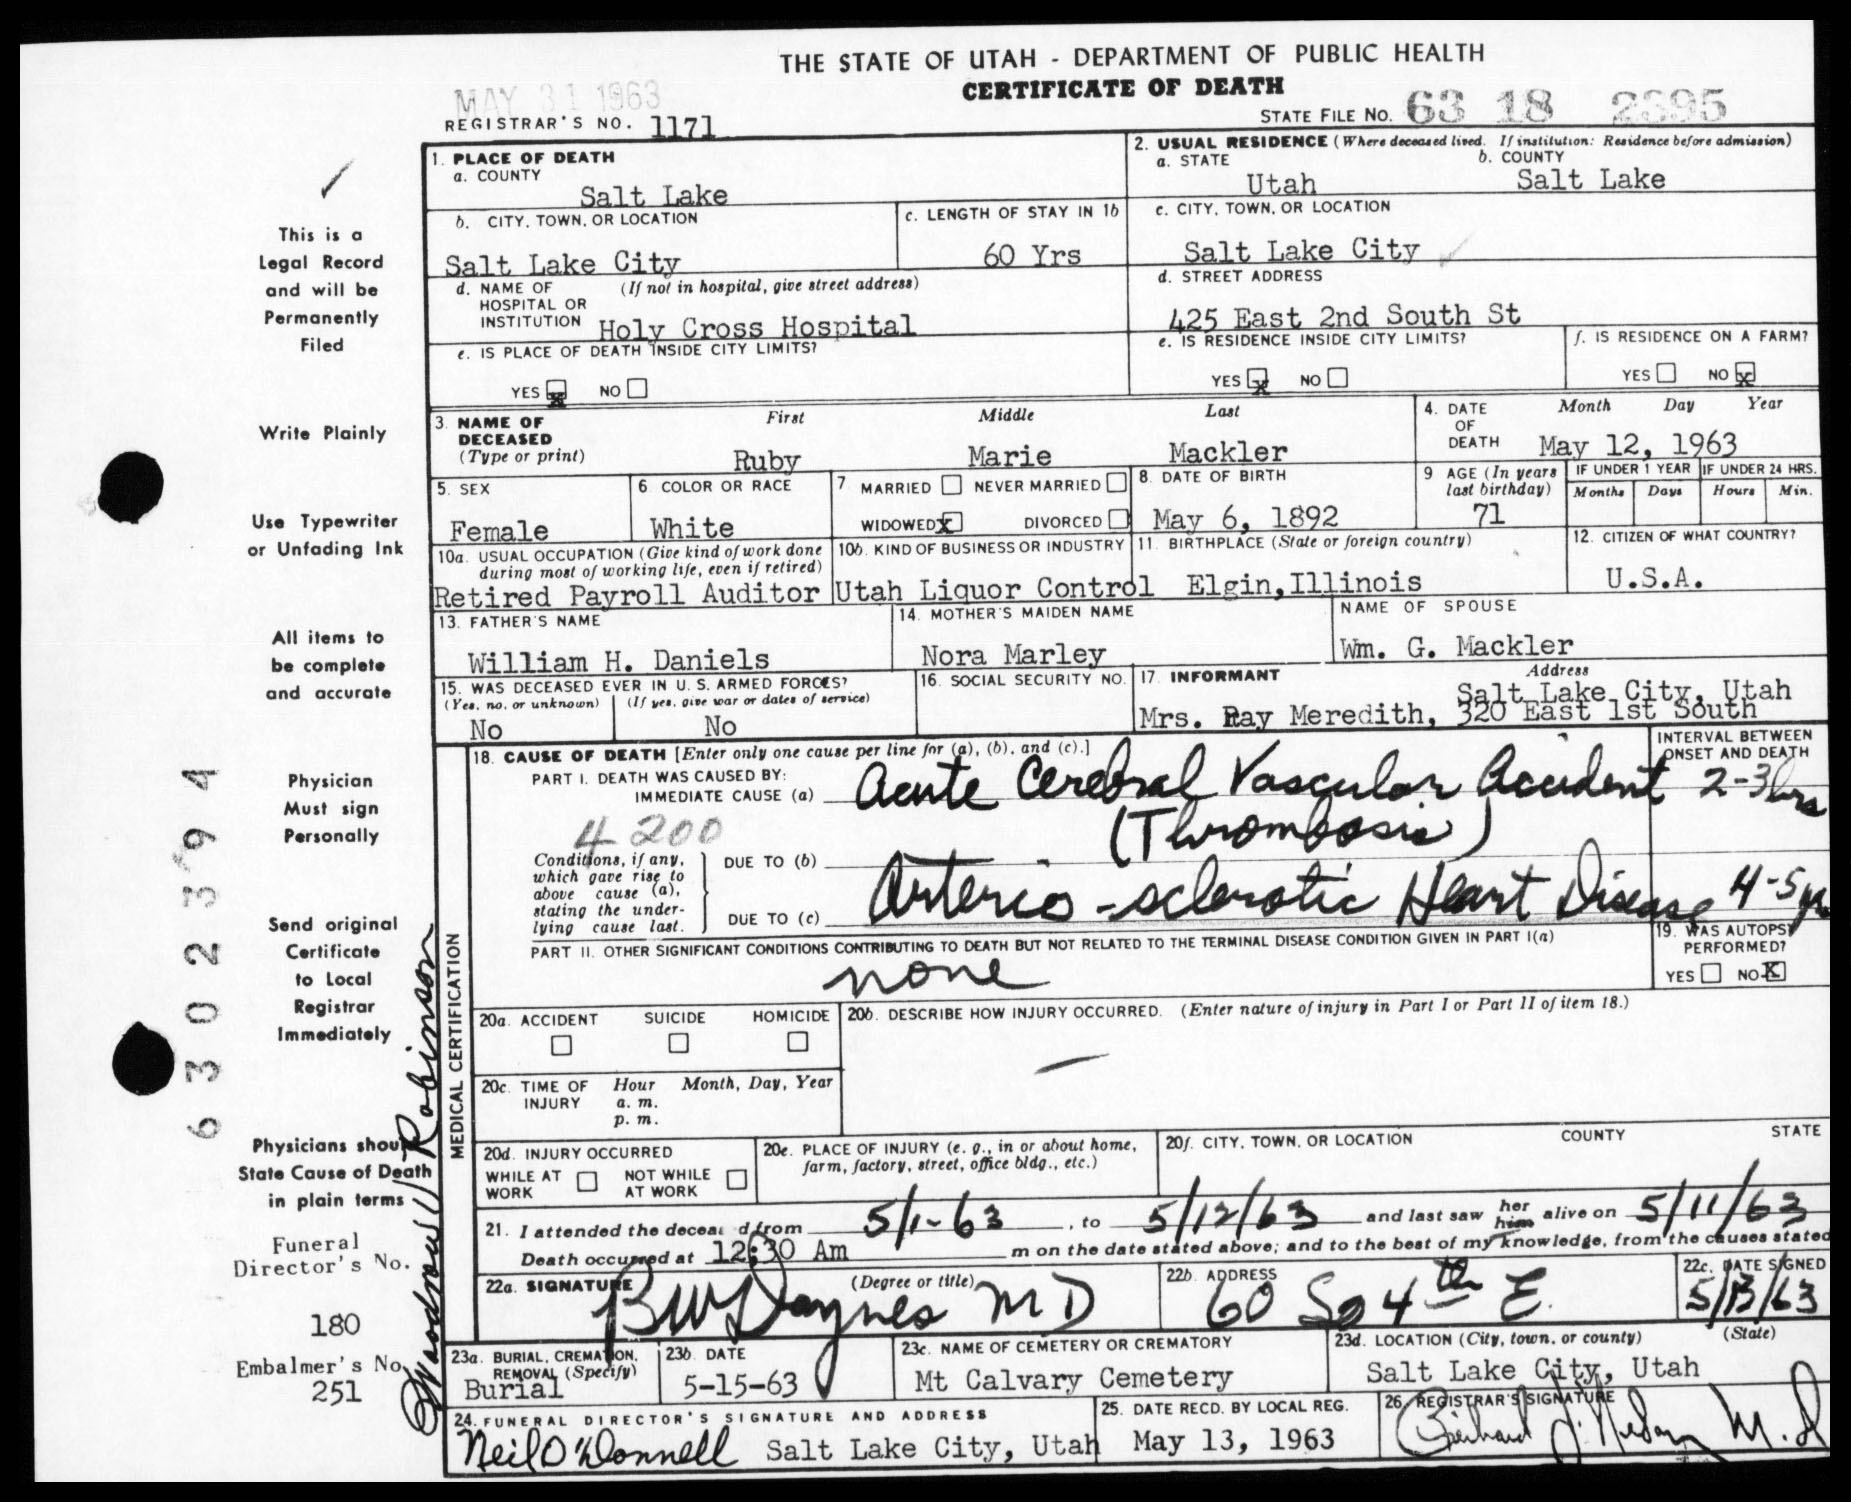 THE STATE OF UTAH - DEPARTMENT OF PUBLIC HEALTH
CERTIFICATE OF DEATH
MAY 31 1963
REGISTRAR'S NO. 1171
STATE FILE NO. 63 18 2395
This is a
Legal Record
and will be
Permanently
Filed
Write Plainly
Use Typewriter
or Unfading Ink
All items to
be complete
and accurate
Physician
Must sign
Personally
Send original
Certificate
to Local
Registrar
Immediately
Physicians should
State Cause of Death
in plain terms
Funeral
Director's No.
180
Embalmer's No.
251
Woodrow W Robinson
6302394
1. PLACE OF DEATH
a. COUNTY
Salt Lake
2. USUAL RESIDENCE (Where deceased lived. If institution: Residence before admission)
a. STATE
Utah
b. COUNTY
Salt Lake
b. CITY, TOWN, OR LOCATION
Salt Lake City
c. LENGTH OF STAY IN 1b
60 Yrs
c. CITY, TOWN, OR LOCATION
Salt Lake City
d. NAME OF HOSPITAL OR INSTITUTION (If not in hospital, give street address)
Holy Cross Hospital
d. STREET ADDRESS
425 East 2nd South St
e. IS PLACE OF DEATH INSIDE CITY LIMITS?
YES X NO
e. IS RESIDENCE INSIDE CITY LIMITS?
YES X NO
f. IS RESIDENCE ON A FARM?
YES NO X
3. NAME OF DECEASED (Type or print)
First Middle Last
Ruby Marie Mackler
4. DATE OF DEATH
Month Day Year
May 12, 1963
5. SEX
Female
6. COLOR OR RACE
White
7. MARRIED NEVER MARRIED
WIDOWED X DIVORCED
8. DATE OF BIRTH
May 6, 1892
9 AGE (In years last birthday)
71
IF UNDER 1 YEAR
Months Days
IF UNDER 24 HRS.
Hours Min.
10a. USUAL OCCUPATION (Give kind of work done during most of working life, even if retired)
Retired Payroll Auditor
10b. KIND OF BUSINESS OR INDUSTRY
Utah Liquor Control
11. BIRTHPLACE (State or foreign country)
Elgin, Illinois
12. CITIZEN OF WHAT COUNTRY?
U.S.A.
13. FATHER'S NAME
William H. Daniels
14. MOTHER'S MAIDEN NAME
Nora Marley
NAME OF SPOUSE
Wm. G. Mackler
15. WAS DECEASED EVER IN U. S. ARMED FORCES?
(Yes, no, or unknown) (If yes, give war or dates of service)
No No
16. SOCIAL SECURITY NO.
17. INFORMANT Address
Salt Lake City, Utah
Mrs. Ray Meredith, 320 East 1st South
MEDICAL CERTIFICATION
18. CAUSE OF DEATH [Enter only one cause per line for (a), (b), and (c).]
INTERVAL BETWEEN ONSET AND DEATH
PART I. DEATH WAS CAUSED BY:
IMMEDIATE CAUSE (a) Acute Cerebral Vascular Accident 2-3 hrs
4 200
(Thrombosis)
Conditions, if any, which gave rise to above cause (a), stating the underlying cause last.
DUE TO (b)
DUE TO (c) Arterio-sclerotic Heart Disease 4-5 yrs
PART II. OTHER SIGNIFICANT CONDITIONS CONTRIBUTING TO DEATH BUT NOT RELATED TO THE TERMINAL DISEASE CONDITION GIVEN IN PART I(a)
none
19. WAS AUTOPSY PERFORMED?
YES NO X
20a. ACCIDENT SUICIDE HOMICIDE
20b. DESCRIBE HOW INJURY OCCURRED. (Enter nature of injury in Part I or Part II of item 18.)
20c. TIME OF INJURY Hour Month, Day, Year
a. m.
p. m.
20d. INJURY OCCURRED
WHILE AT WORK NOT WHILE AT WORK
20e. PLACE OF INJURY (e. g., in or about home, farm, factory, street, office bldg., etc.)
20f. CITY, TOWN, OR LOCATION COUNTY STATE
21. I attended the deceased from 5/1-63, to 5/12/63 and last saw her him alive on 5/11/63
Death occurred at 12:30 Am m on the date stated above; and to the best of my knowledge, from the causes stated
22a. SIGNATURE (Degree or title)
BW Daynes MD
22b. ADDRESS
60 So 4th E.
22c. DATE SIGNED
5/13/63
23a. BURIAL, CREMATION, REMOVAL (Specify)
Burial
23b. DATE
5-15-63
23c. NAME OF CEMETERY OR CREMATORY
Mt Calvary Cemetery
23d. LOCATION (City, town, or county) (State)
Salt Lake City, Utah
24. FUNERAL DIRECTOR'S SIGNATURE AND ADDRESS
Neil O'Donnell Salt Lake City, Utah
25. DATE RECD. BY LOCAL REG.
May 13, 1963
26. REGISTRAR'S SIGNATURE
M.D